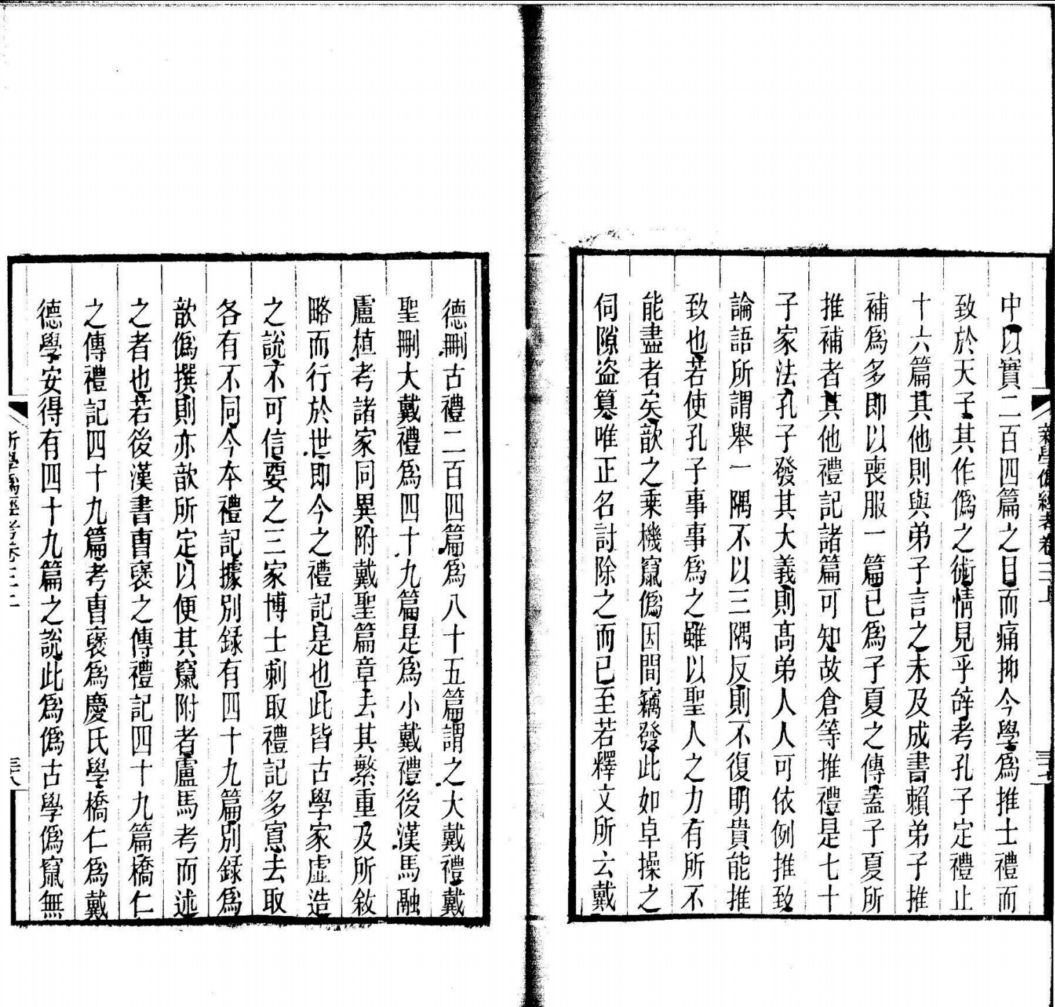 中以實二百四篇之目而痛抑今學爲推士禮而
致於天子其作僞之術情見乎辭考孔子定禮止
十六篇其他則與弟子言之未及成書賴弟子推
補爲多即以喪服一篇已爲子夏之傳蓋子夏所
推補者其他禮記諸篇可知故倉等推禮是七十
子家法孔子發其大義則高弟人人可依例推致
論語所謂舉一隅不以三隅反則不復明貴能推
致也若使孔子事事爲之雖以聖人之力有所不
能盡者矣歆之乗機竄僞因間竊發此如卓操之
伺隙盜簒唯正名討除之而已至若釋文所云戴
新學僞經考卷三上
德刪古禮二百四篇爲八十五篇謂之大戴禮戴
聖刪大戴禮爲四十九篇是爲小戴禮後漢馬融
盧植考諸家同異附戴聖篇章去其繁重及所敘
略而行於世即今之禮記是也此皆古學家虛造
之說不可信要之三家博士刺取禮記多寡去取
各有不同今本禮記據別錄有四十九篇別錄爲
歆僞撰則亦歆所定以便其竄附者盧馬考而述
之者也若後漢書曹襃之傳禮記四十九篇橋仁
之傳禮記四十九篇考曹襃爲慶氏學橋仁爲戴
德學安得有四十九篇之說此爲僞古學僞竄無
新學僞經考卷三上
三八